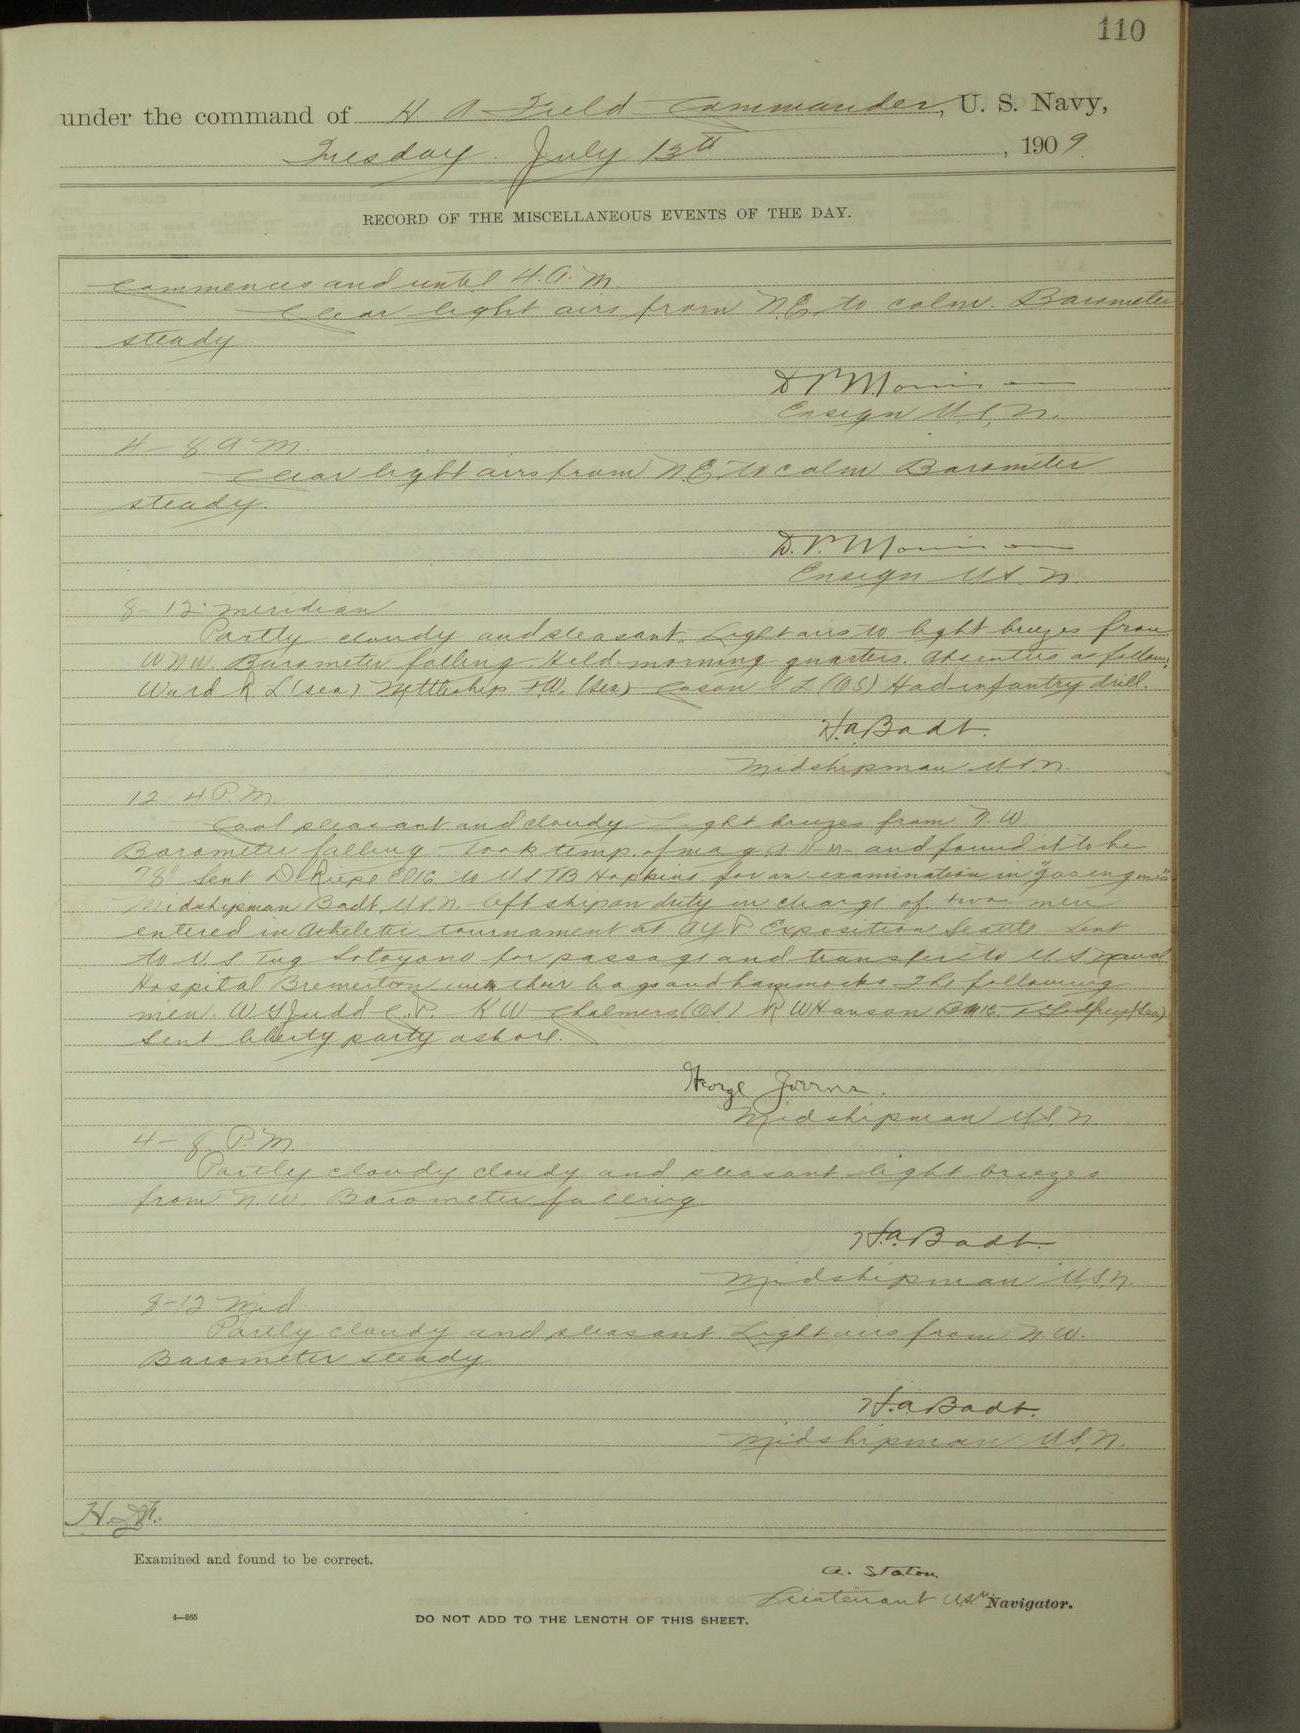 110
under the command of H A Field Commander, U. S. Navy,
Tuesday July 13th, 1909
RECORD OF THE MISCELLANEOUS EVENTS OF THE DAY.
Commences and until 4 A. M.
Clear light airs from N.E. to calm. Barometer
steady
Ensign U.S.N.
4 - 8 A M.
Clear light airs from N.E. to calm Barometer
steady.
Ensign U.S.N.
8 - 12 meridian
Partly cloudy and pleasant. Light airs to light breezes from
WNW. Barometer falling. Held morning quarters. Absentees as follows,
Ward R L (sea) Nettleship F.W. (sea) Cason L (OS) Had infantry drill.
H.A. Badt.
Midshipman U.S.N.
12 - 4 P.M.
Cool pleasant and cloudy Light breezes from N.W.
Barometer falling. Took temp. of mag. and found it to be
78° Sent D to U S TB Hopkins for an examination in "gas engines"
Midshipman Badt, U.S.N. left ship on duty in charge of two men
entered in Atheletic tournament at AYP. Exposition Seattle. Sent
to U.S. Tug Sotoyomo for passage and transfer to U.S Naval
Hospital Bremerton with their bags and hammocks The following
men. W G Judd C.P. K W Chalmers (OS) R W Hanson
Sent liberty party ashore.
George
Midshipman U.S.N.
4 - 8 P. M.
Partly cloudy cloudy and pleasant light breezes
from N.W. Barometer falling
H.A. Badt.
Midshipman U.S.N.
8-12 Mid
Partly cloudy and pleasant. Light airs from N.W.
Barometer steady
H.A. Badt.
Midshipman U.S.N.
Examined and found to be correct.
A. Staton
Lieutenant U.S.N. Navigator.
4—265
DO NOT ADD TO THE LENGTH OF THIS SHEET.